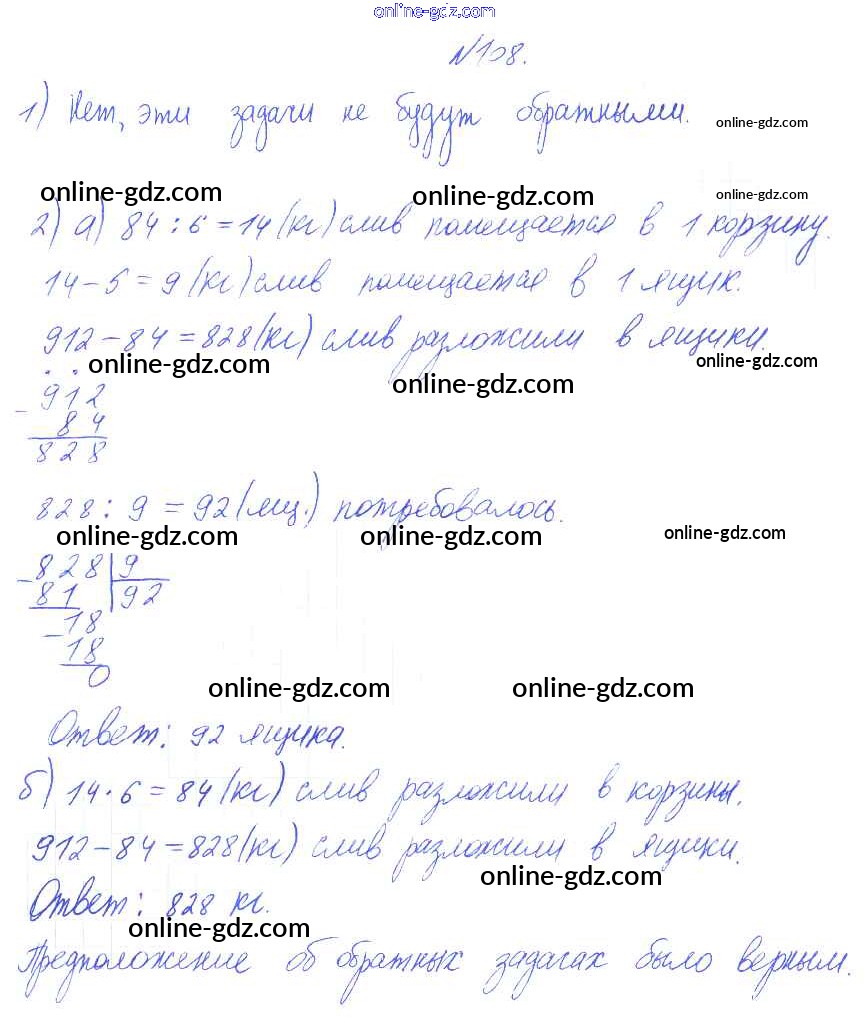 online-gdz.com
№108.
1) Нет, эти задачи не будут обратными.
online-gdz.com
online-gdz.com online-gdz.com online-gdz.com
2) а) 84 : 6 = 14 (кг) слив помещается в 1 корзину.
14 - 5 = 9 (кг) слив помещается в 1 ящик.
912 - 84 = 828 (кг) слив разложили в ящики.
online-gdz.com online-gdz.com online-gdz.com
- 912
84
828
828 : 9 = 92 (ящ.) потребовалось.
online-gdz.com online-gdz.com online-gdz.com
- 828 | 9
81 | 92
- 18
18
0
online-gdz.com online-gdz.com
Ответ: 92 ящика.
б) 14 · 6 = 84 (кг) слив разложили в корзины.
912 - 84 = 828 (кг) слив разложили в ящики.
online-gdz.com
Ответ: 828 кг.
online-gdz.com
Предположение об обратных задачах было верным.